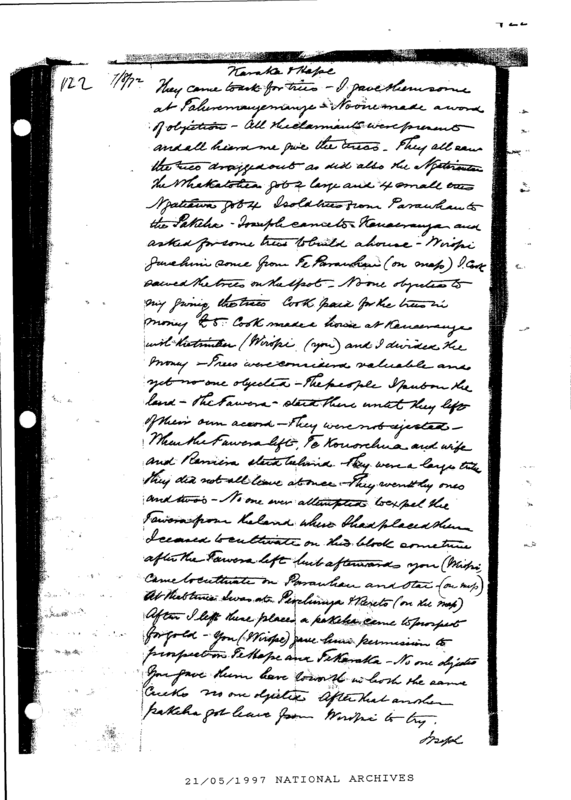 122
122 7/8/72
Karaka & Hape
They came to ask for trees – I gave them some
at – No one made a word
of objection – All the claimants were present
and all heard me give the trees. – They all saw
the trees dragged out as did also the
the Whakatohea got 2 large and 4 small trees
got 4 I sold trees from Parawhau to
the Pakeha – Joseph came to Kauaeranga and
asked for some trees to build a house – Wiropi
gave him some from Te Parawhau (on map) J. Cook
sawed the trees on the spot – No one objected to
my giving the trees Cook paid for the trees in
money £5. Cook made a house at Kauaeranga
with the timber (Wiropi (you) and I divided the
money – Trees were considered valuable and
yet no one objected – The people I put on the
land – The Tawera – staid there until they left
of their own accord – They were not ejected –
When the Tawera left, Te and wife
and staid behind. They were a large tribe
they did not all leave at once – They went by ones
and twos – No one ever attempted to expel the
Tawera from the land where I had placed them
I ceased to cultivate on this block sometime
after the Tawera left but afterwards you (Wiropi)
came to cultivate on Parawhau and (on map)
At that time I was at & (on the map)
After I left these places a pakeha came to prospect
for gold – You (Wiropi) gave him permission to
prospect on Te Hape and Te Karaka – No one objected
You gave them leave to work in both the same
Creeks no one objected After that another
pakeha got leave from Wiropi to try.
Joseph
21/05/1997 NATIONAL ARCHIVES